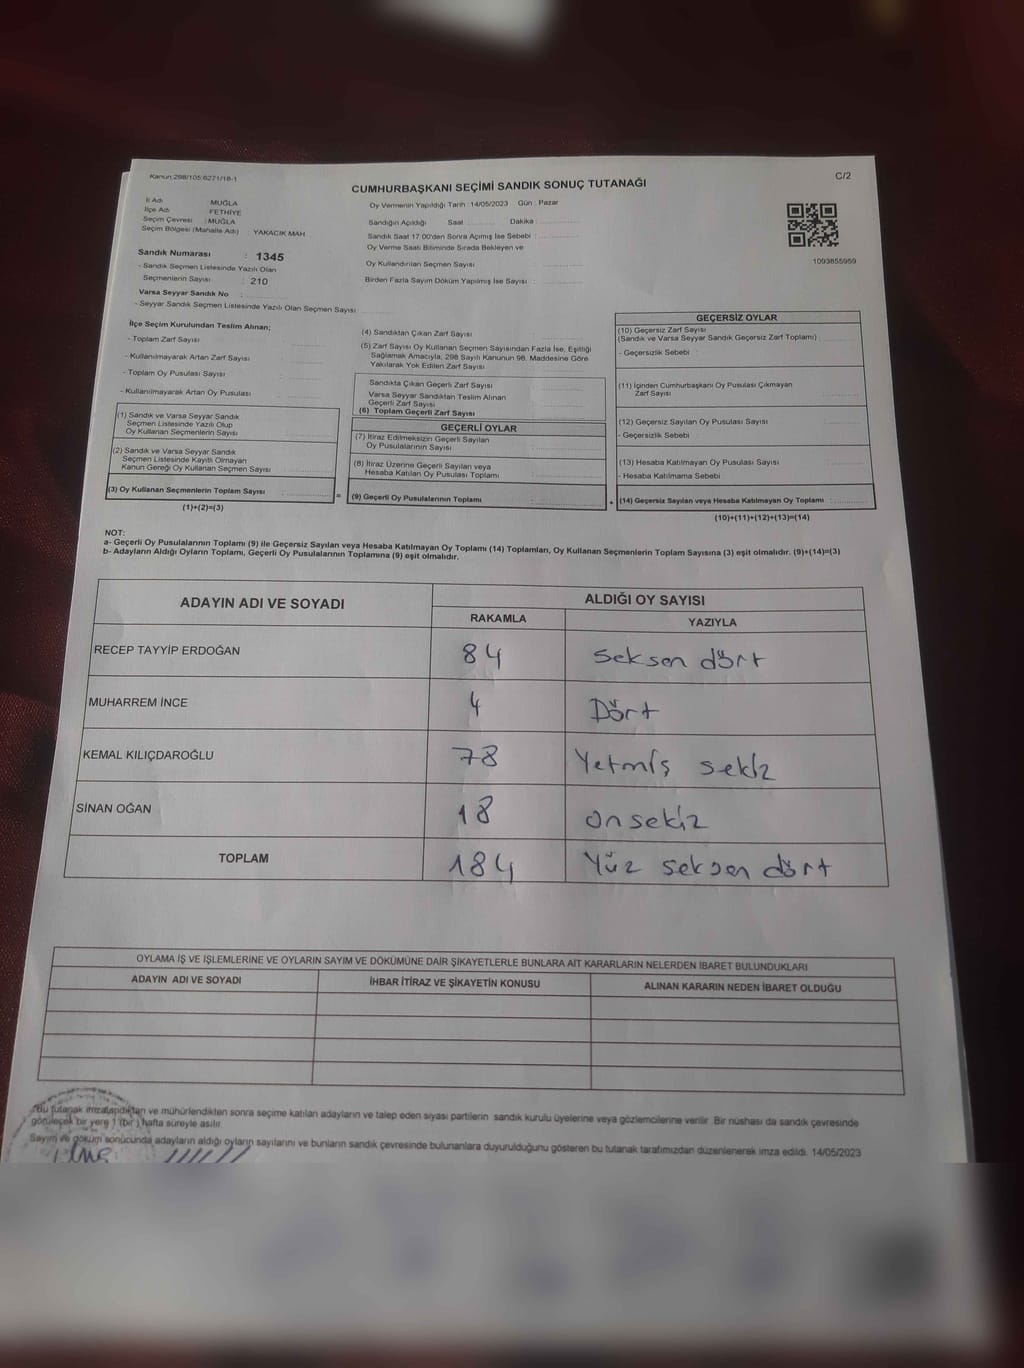 Kanun:298/105;6271/18-1
C/2
CUMHURBAŞKANI SEÇİMİ SANDIK SONUÇ TUTANAĞI
İl Adı : MUĞLA
İlçe Adı : FETHİYE
Seçim Çevresi : MUĞLA
Seçim Bölgesi (Mahalle Adı) : YAKACIK MAH
Sandık Numarası : 1345
- Sandık Seçmen Listesinde Yazılı Olan
Seçmenlerin Sayısı : 210
Varsa Seyyar Sandık No :
- Seyyar Sandık Seçmen Listesinde Yazılı Olan Seçmen Sayısı
Oy Vermenin Yapıldığı Tarih :14/05/2023 Gün : Pazar
Sandığın Açıldığı Saat Dakika :
Sandık Saat 17:00'den Sonra Açımış İse Sebebi :
Oy Verme Saati Bitiminde Sırada Bekleyen ve
Oy Kullandırılan Seçmen Sayısı
Birden Fazla Sayım Döküm Yapılmış İse Sayısı :
1093855959
İlçe Seçim Kurulundan Teslim Alınan;
- Toplam Zarf Sayısı
- Kullanılmayarak Artan Zarf Sayısı
- Toplam Oy Pusulası Sayısı
- Kullanılmayarak Artan Oy Pusulası
(1) Sandık ve Varsa Seyyar Sandık
Seçmen Listesinde Yazılı Olup
Oy Kullanan Seçmenlerin Sayısı
(2) Sandık ve Varsa Seyyar Sandık
Seçmen Listesinde Kayıtlı Olmayan
Kanun Gereği Oy Kullanan Seçmen Sayısı
(3) Oy Kullanan Seçmenlerin Toplam Sayısı :
(1)+(2)=(3)
=
(4) Sandıktan Çıkan Zarf Sayısı
(5) Zarf Sayısı Oy Kullanan Seçmen Sayısından Fazla İse, Eşitliği
Sağlamak Amacıyla, 298 Sayılı Kanunun 98. Maddesine Göre
Yakılarak Yok Edilen Zarf Sayısı
Sandıkta Çıkan Geçerli Zarf Sayısı
Varsa Seyyar Sandıktan Teslim Alınan
Geçerli Zarf Sayısı
(6) Toplam Geçerli Zarf Sayısı
GEÇERLİ OYLAR
(7) İtiraz Edilmeksizin Geçerli Sayılan
Oy Pusulalarının Sayısı
(8) İtiraz Üzerine Geçerli Sayılan veya
Hesaba Katılan Oy Pusulası Toplamı
(9) Geçerli Oy Pusulalarının Toplamı
+
GEÇERSİZ OYLAR
(10) Geçersiz Zarf Sayısı
(Sandık ve Varsa Seyyar Sandık Geçersiz Zarf Toplamı)
- Geçersizlik Sebebi
(11) İçinden Cumhurbaşkanı Oy Pusulası Çıkmayan
Zarf Sayısı
(12) Geçersiz Sayılan Oy Pusulası Sayısı
- Geçersizlik Sebebi
(13) Hesaba Katılmayan Oy Pusulası Sayısı
- Hesaba Katılmama Sebebi
(14) Geçersiz Sayılan veya Hesaba Katılmayan Oy Toplamı :
(10)+(11)+(12)+(13)=(14)
NOT:
a- Geçerli Oy Pusulalarının Toplamı (9) ile Geçersiz Sayılan veya Hesaba Katılmayan Oy Toplamı (14) Toplamları, Oy Kullanan Seçmenlerin Toplam Sayısına (3) eşit olmalıdır. (9)+(14)=(3)
b- Adayların Aldığı Oyların Toplamı, Geçerli Oy Pusulalarının Toplamına (9) eşit olmalıdır.
ADAYIN ADI VE SOYADI
ALDIĞI OY SAYISI
RAKAMLA YAZIYLA
RECEP TAYYİP ERDOĞAN 84 seksen dört
MUHARREM İNCE 4 Dört
KEMAL KILIÇDAROĞLU 78 Yetmiş sekiz
SİNAN OĞAN 18 onsekiz
TOPLAM 184 Yüz seksen dört
OYLAMA İŞ VE İŞLEMLERİNE VE OYLARIN SAYIM VE DÖKÜMÜNE DAİR ŞİKAYETLERLE BUNLARA AİT KARARLARIN NELERDEN İBARET BULUNDUKLARI
ADAYIN ADI VE SOYADI İHBAR İTİRAZ VE ŞİKAYETİN KONUSU ALINAN KARARIN NEDEN İBARET OLDUĞU
Bu tutanak imzalandıktan ve mühürlendikten sonra seçime katılan adayların ve talep eden siyasi partilerin sandık kurulu üyelerine veya gözlemcilerine verilir. Bir nüshası da sandık çevresinde
görülecek bir yere 1 (bir) hafta süreyle asılır.
Sayım ve döküm sonucunda adayların aldığı oyların sayılarını ve bunların sandık çevresinde bulunanlara duyurulduğunu gösteren bu tutanak tarafımızdan düzenlenerek imza edildi. 14/05/2023